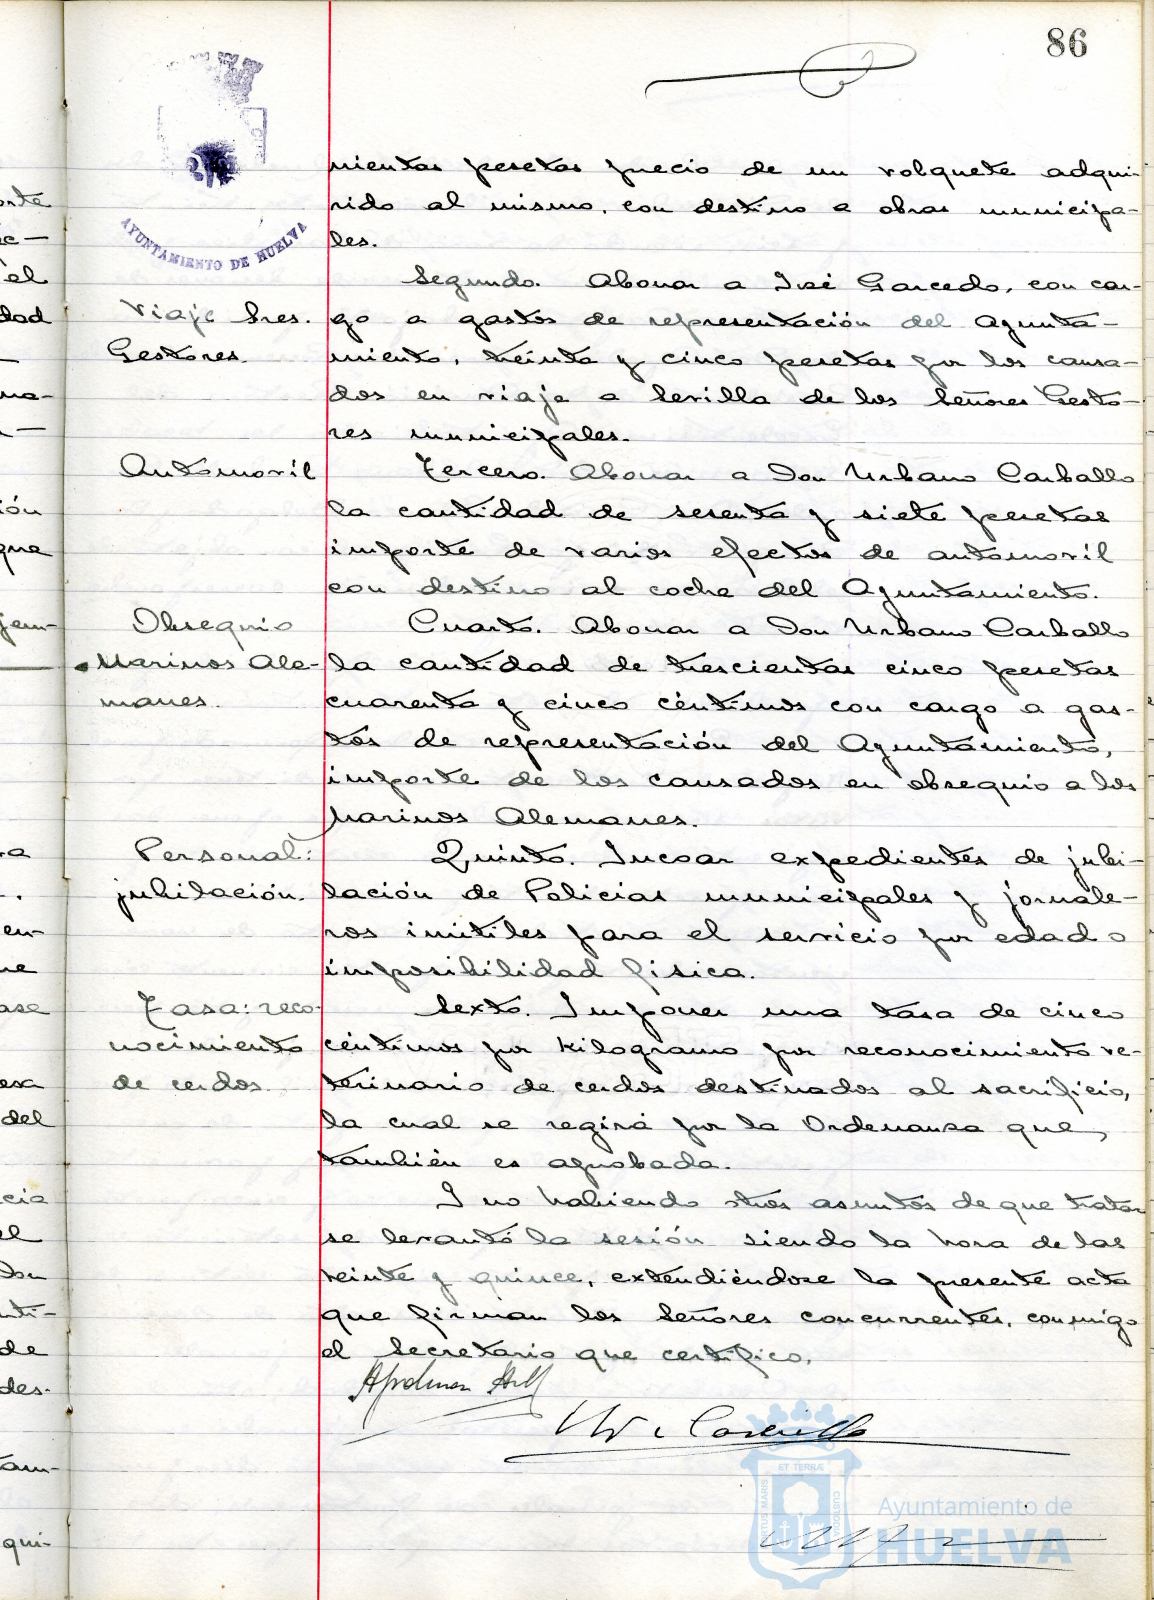 86
AYUNTAMIENTO DE HUELVA
nientas pesetas precio de un volquete adqui-
rido al mismo, con destino a obras municipa-
les.
Segundo. Abonar a José Garcedo, con car-
Viaje Sres.
go a gastos de representación del Ayunta-
Gestores.
miento, treinta y cinco pesetas por los causa-
dos en viaje a Sevilla de los Señores Gesto-
res municipales.
Automovil
Tercero. Abonar a Don Urbano Carballo
la cantidad de sesenta y siete pesetas
importe de varios efectos de automovil
con destino al coche del Ayuntamiento.
Obsequio
Cuarto. Abonar a Don Urbano Carballo
Marinos Ale-
la cantidad de trescientas cinco pesetas
manes.
cuarenta y cinco céntimos con cargo a gas-
tos de representación del Ayuntamiento,
importe de los causados en obsequio a los
Marinos Alemanes.
Personal:
Quinto. Incoar expedientes de jubi-
jubilación.
lación de Policias municipales y jornale-
ros inútiles para el servicio por edad o
imposibilidad fisica.
Tasa: reco-
Sexto. Imponer una tasa de cinco
nocimiento
céntimos por kilogramo por reconocimiento ve-
de cerdos.
terinario de cerdos destinados al sacrificio,
la cual se regirá por la Ordenanza que,
también es aprobada.
I no habiendo otros asuntos de que tratar
se levantó la sesión siendo la hora de las
veinte y quince, extendiéndose la presente acta
que firman los Señores concurrentes, conmigo
el Secretario que certifico.
ET TERRÆ
PORTUS MARIS
CUSTODIA
Ayuntamiento de
HUELVA